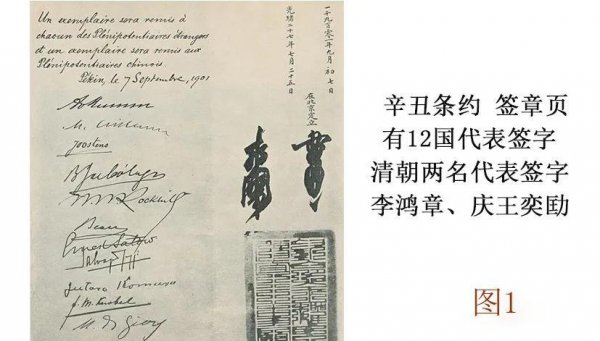 Un exemplaire sera remis à
chacun des Plénipotentiaires étrangers
et un exemplaire sera remis aux
Plénipotentiaires chinois.
Pékin, le 7 Septembre, 1901
Joostens
Rockhill
Beau
Ernest Satow
Jutaro Komura
F. M. Knobel
M. de Giers
一千九百零一年九月初七日
光緒二十七年七月二十五日
在北京定立
辛丑条约 签章页
有12国代表签字
清朝两名代表签字
李鸿章、庆王奕劻
图1